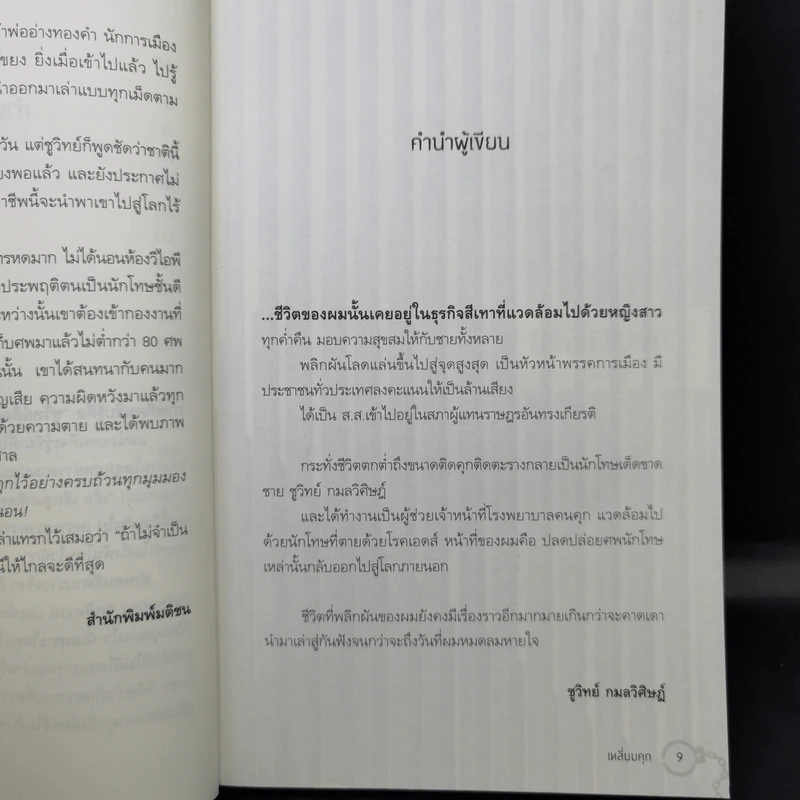 าพ่ออ่างทองคำ นักการเมือง
ขยง ยิ่งเมื่อเข้าไปแล้ว ไปรู้
ำออกมาเล่าแบบทุกเม็ดตาม
วัน แต่ชูวิทย์ก็พูดชัดว่าชาตินี้
ยงพอแล้ว และยังประกาศไม่
าชีพนี้จะนำพาเขาไปสู่โลกไร้
ารหดมาก ไม่ได้นอนห้องวีไอพี
ประพฤติตนเป็นนักโทษชั้นดี
หว่างนั้นเขาต้องเข้ากองงานที่
ก็บศพมาแล้วไม่ต่ำกว่า 80 ศพ
นั้น เขาได้สนทนากับคนมาก
ญเสีย ความผิดหวังมาแล้วทุก
ด้วยความตาย และได้พบภาพ
าล
ุกไว้อย่างครบถ้วนทุกมุมมอง
นอน!
ล่าแทรกไว้เสมอว่า "ถ้าไม่จำเป็น
นีให้ไกลจะดีที่สุด
สำนักพิมพ์มติชน
คำนำผู้เขียน
...ชีวิตของผมนั้นเคยอยู่ในธุรกิจสีเทาที่แวดล้อมไปด้วยหญิงสาว
ทุกค่ำคืน มอบความสุขสมให้กับชายทั้งหลาย
พลิกผันโลดแล่นขึ้นไปสู่จุดสูงสุด เป็นหัวหน้าพรรคการเมือง มี
ประชาชนทั่วประเทศลงคะแนนให้เป็นล้านเสียง
ได้เป็น ส.ส.เข้าไปอยู่ในสภาผู้แทนราษฎรอันทรงเกียรติ
กระทั่งชีวิตตกต่ำถึงขนาดติดคุกติดตะรางกลายเป็นนักโทษเด็ดขาด
ชาย ชูวิทย์ กมลวิศิษฎ์
และได้ทำงานเป็นผู้ช่วยเจ้าหน้าที่โรงพยาบาลคนคุก แวดล้อมไป
ด้วยนักโทษที่ตายด้วยโรคเอดส์ หน้าที่ของผมคือ ปลดปล่อยศพนักโทษ
เหล่านั้นกลับออกไปสู่โลกภายนอก
ชีวิตที่พลิกผันของผมยังคงมีเรื่องราวอีกมากมายเกินกว่าจะคาดเดา
นำมาเล่าสู่กันฟังจนกว่าจะถึงวันที่ผมหมดลมหายใจ
ชูวิทย์ กมลวิศิษฎ์
เหลี่ยมคุก 9